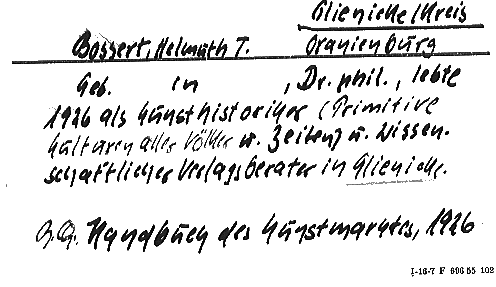 Glienicke/Kreis
Bossert, Helmuth T. Oranienburg
Geb. in , Dr. phil., lebte
1926 als Kunsthistoriker (Primitive
Kulturen aller Völker u. Zeiten) u. wissen-
schaftlicher Verlagsberater in Glienicke.
Handbuch des Kunstmarktes, 1926
I-16-7 F 696 55 102